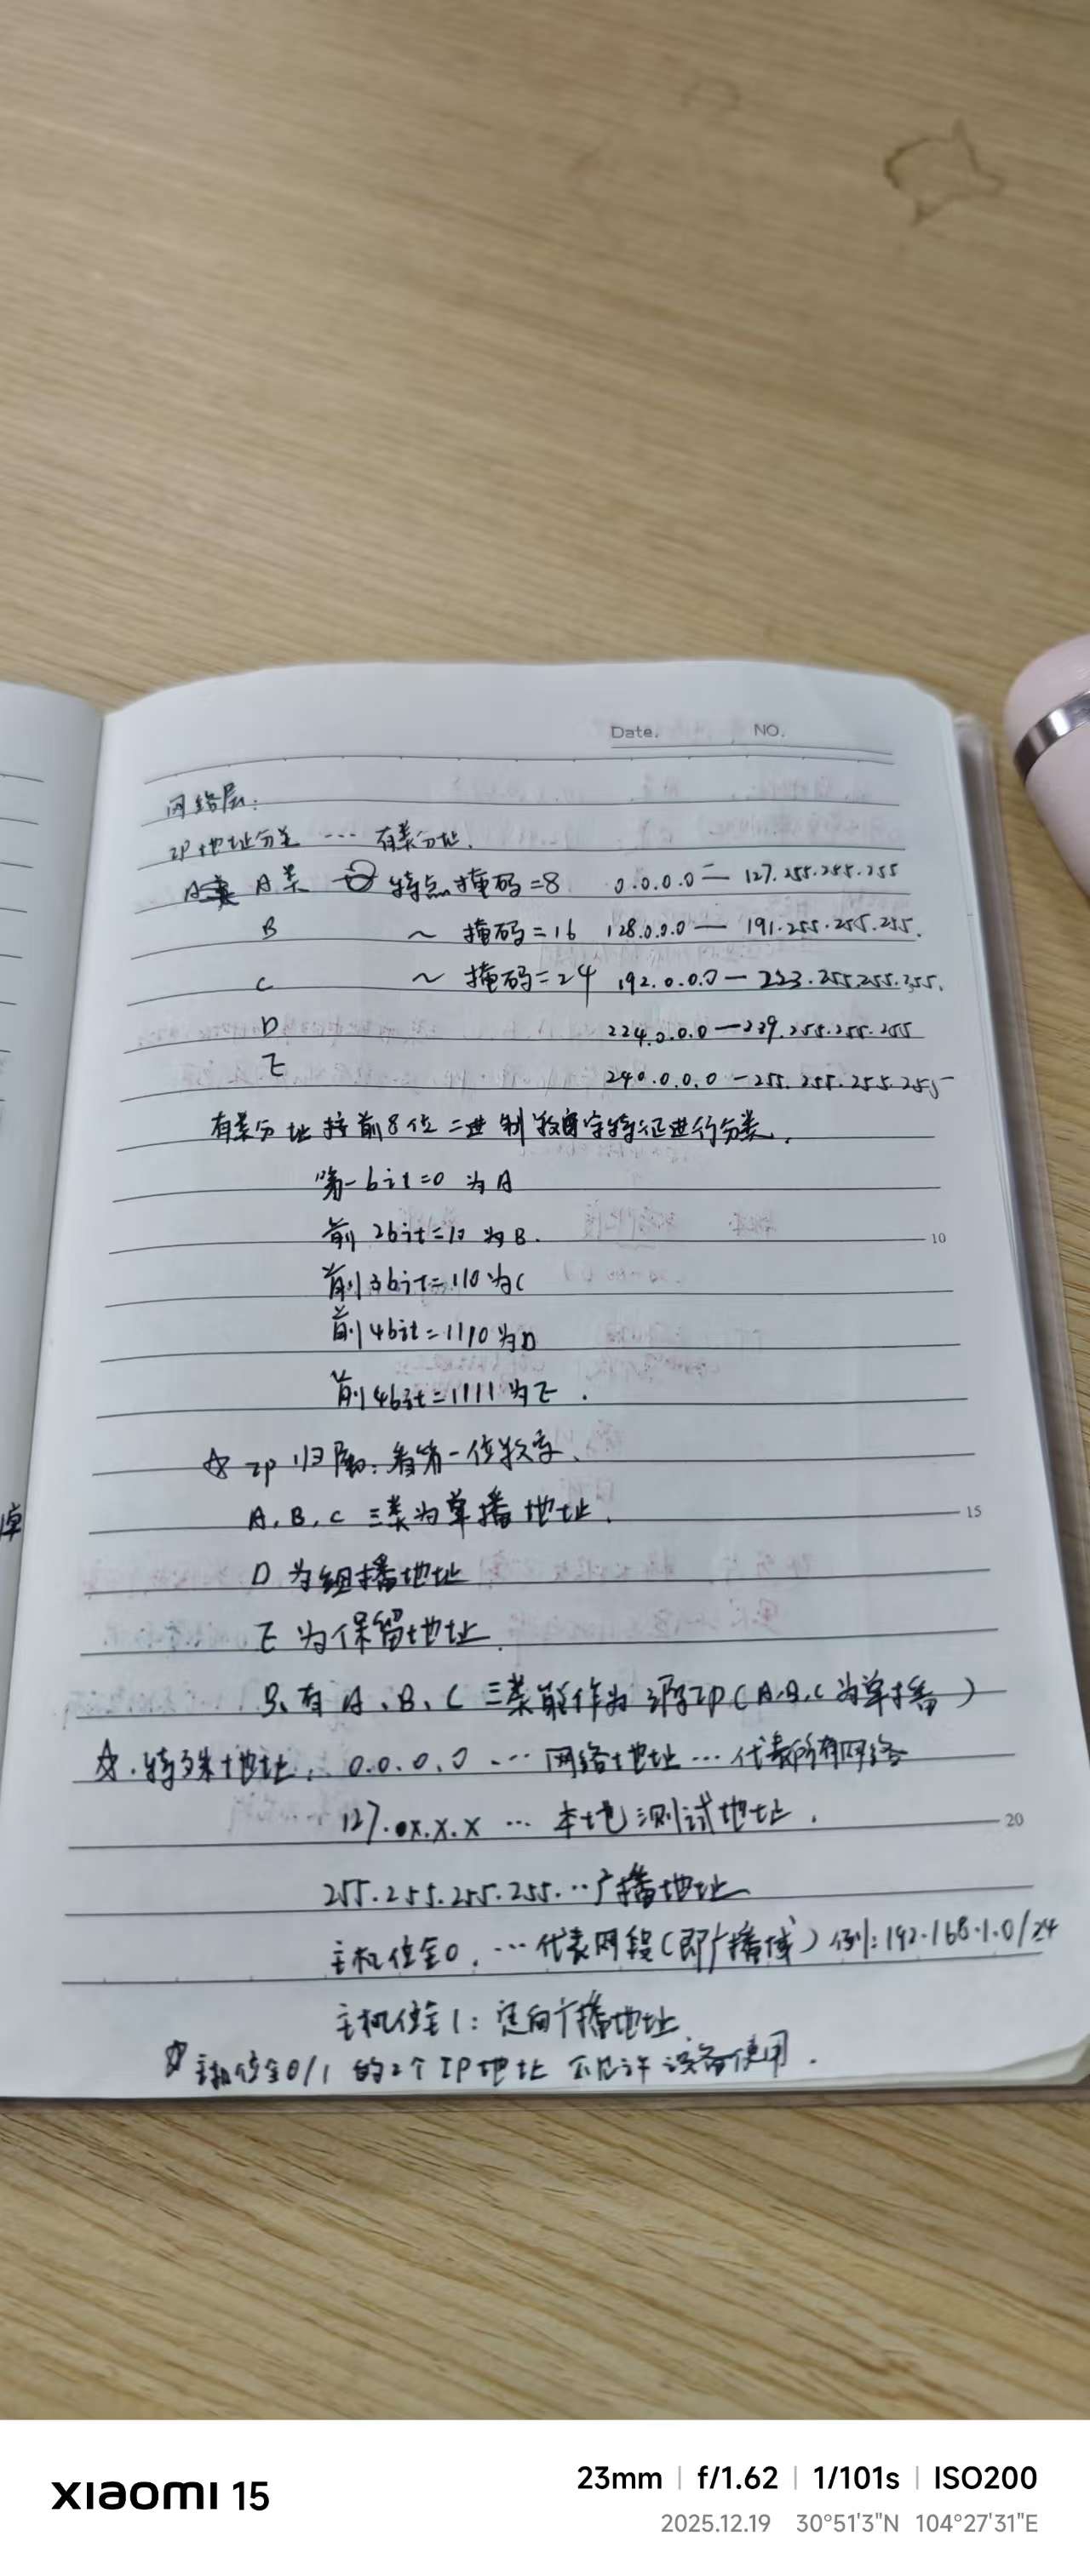 Date. NO.
网络层:
IP地址分类 ··· 有类分址.
A类 特点 掩码=8 0.0.0.0 — 127.255.255.255
B ~ 掩码=16 128.0.0.0 — 191.255.255.255.
C ~ 掩码=24 192.0.0.0 — 223.255.255.255.
D 224.0.0.0 — 239.255.255.255
E 240.0.0.0 — 255.255.255.255
有类分址按前8位二进制数字特征进行分类.
第一bit=0 为A
前2bit=10 为B.
前3bit=110为C
前4bit=1110为D
前4bit=1111为E.
☆ IP归属:看第一位数字.
A,B,C三类为单播地址.
D为组播地址
E为保留地址.
只有A、B、C三类能作为源IP(A.B.C为单播)
☆.特殊地址: 0.0.0.0 ··· 网络地址 ··· 代表所有网络
127.x.x.x ··· 本地测试地址.
255.255.255.255 ··· 广播地址
主机位全0. ··· 代表网段(即广播域)例:192.168.1.0/24
主机位全1:定向广播地址
☆主机位全0/1的2个IP地址不允许设备使用.
10
15
20
XIAOMI 15
23mm | f/1.62 | 1/101s | ISO200
2025.12.19 30°51'3"N 104°27'31"E